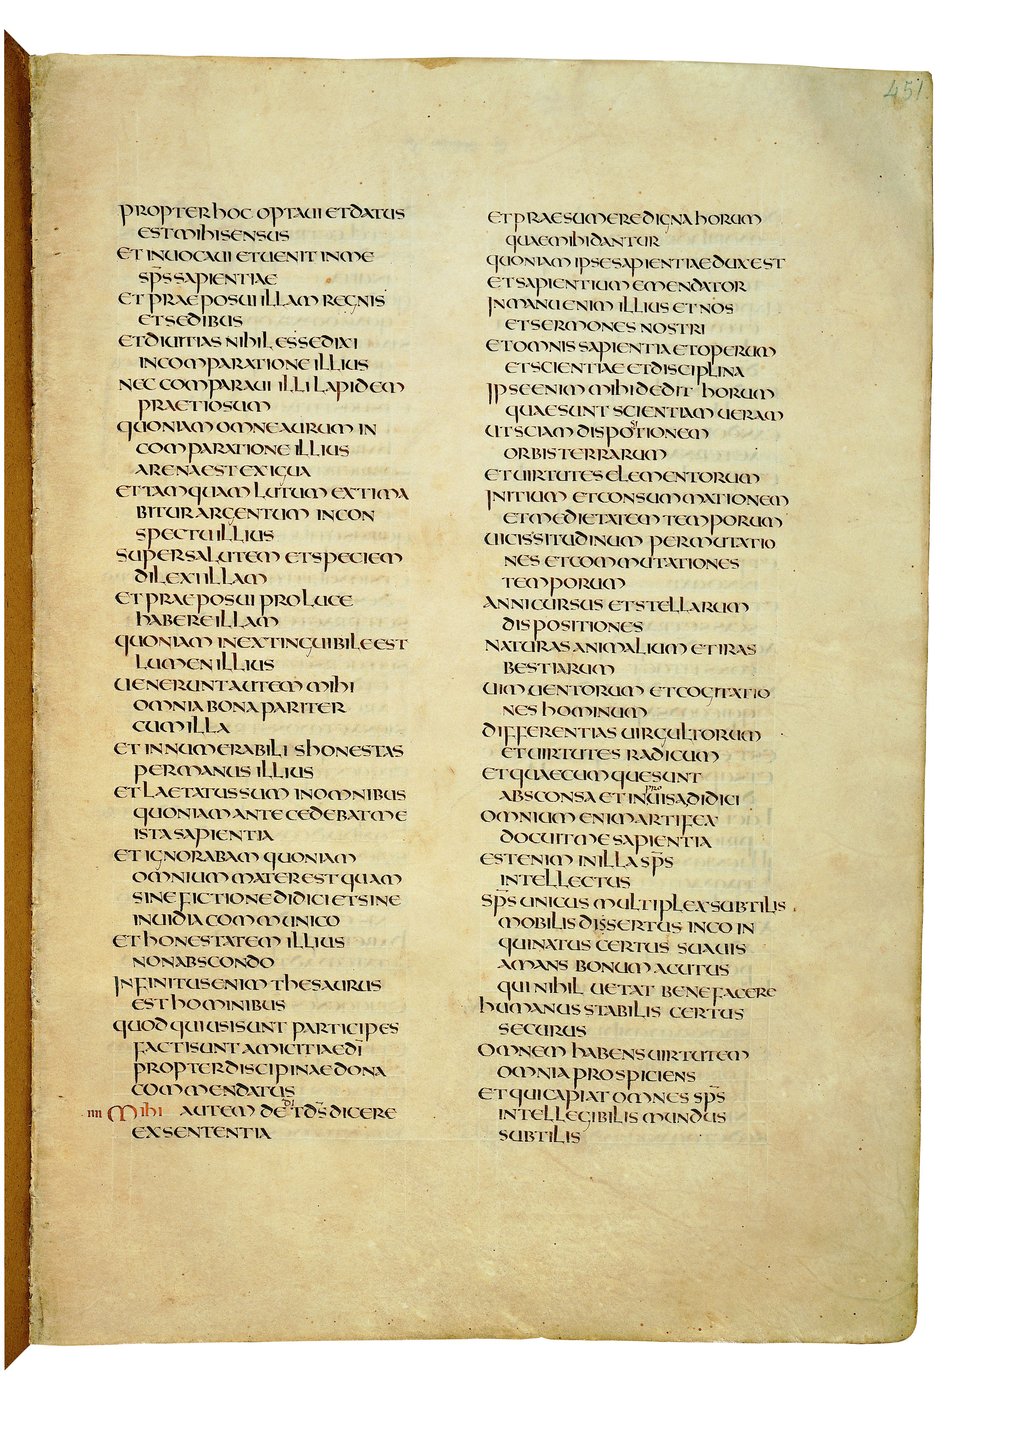 451
PROPTER HOC OPTAUI ET DATUS
EST MIHI SENSUS
ET INUOCAUI ET UENIT IN ME
SP̄S SAPIENTIAE
ET PRAEPOSUI ILLAM REGNIS
ET SEDIBUS
ET DIUITIAS NIHIL ESSE DIXI
IN COMPARATIONE ILLIUS
NEC COMPARAUI ILLI LAPIDEM
PRAETIOSUM
QUONIAM OMNE AURUM IN
COMPARATIONE ILLIUS
ARENA EST EXIGUA
ET TAMQUAM LUTUM EXTIMA
BITUR ARGENTUM IN CON
SPECTU ILLIUS
SUPER SALUTEM ET SPECIEM
DILEXI ILLAM
ET PRAEPOSUI PRO LUCE
HABERE ILLAM
QUONIAM INEXTINGUIBILE EST
LUMEN ILLIUS
UENERUNT AUTEM MIHI
OMNIA BONA PARITER
CUM ILLA
ET INNUMERABILIS HONESTAS
PER MANUS ILLIUS
ET LAETATUS SUM IN OMNIBUS
QUONIAM ANTECEDEBAT ME
ISTA SAPIENTIA
ET IGNORABAM QUONIAM
OMNIUM MATER EST QUAM
SINE FICTIONE DIDICI ET SINE
INUIDIA COMMUNICO
ET HONESTATEM ILLIUS
NON ABSCONDO
INFINITUS ENIM THESAURUS
EST HOMINIBUS
QUOD QUI USI SUNT PARTICIPES
FACTI SUNT AMICITIAE DĪ
PROPTER DISCIPINAE DONA
COMMENDATUS
IIII MIHI AUTEM DEDIT D̄S DICERE
EX SENTENTIA
ET PRAESUMERE DIGNA HORUM
QUAE MIHI DANTUR
QUONIAM IPSE SAPIENTIAE DUX EST
ET SAPIENTIUM EMENDATOR
IN MANU ENIM ILLIUS ET NOS
ET SERMONES NOSTRI
ET OMNIS SAPIENTIA ET OPERUM
ET SCIENTIAE ET DISCIPLINA
IPSE ENIM MIHI DEDIT HORUM
QUAE SUNT SCIENTIAM UERAM
UT SCIAM DISPOSITIONEM
ORBIS TERRARUM
ET UIRTUTES ELEMENTORUM
INITIUM ET CONSUMMATIONEM
ET MEDIETATEM TEMPORUM
UICISSITUDINUM PERMUTATIO
NES ET COMMUTATIONES
TEMPORUM
ANNI CURSUS ET STELLARUM
DISPOSITIONES
NATURAS ANIMALIUM ET IRAS
BESTIARUM
UIM UENTORUM ET COGITATIO
NES HOMINUM
DIFFERENTIAS UIRGULTORUM
ET UIRTUTES RADICUM
ET QUAECUMQUE SUNT
ABSCONSA ET INPROUISA DIDICI
OMNIUM ENIM ARTIFEX
DOCUIT ME SAPIENTIA
EST ENIM IN ILLA SP̄S
INTELLECTUS
SP̄S UNICUS MULTIPLEX SUBTILIS
MOBILIS DISSERTUS INCOIN
QUINATUS CERTUS SUAUIS
AMANS BONUM ACUTUS
QUI NIHIL UETAT BENEFACERE
HUMANUS STABILIS CERTUS
SECURUS
OMNEM HABENS UIRTUTEM
OMNIA PROSPICIENS
ET QUI CAPIAT OMNES SP̄S
INTELLEGIBILIS MUNDUS
SUBTILIS